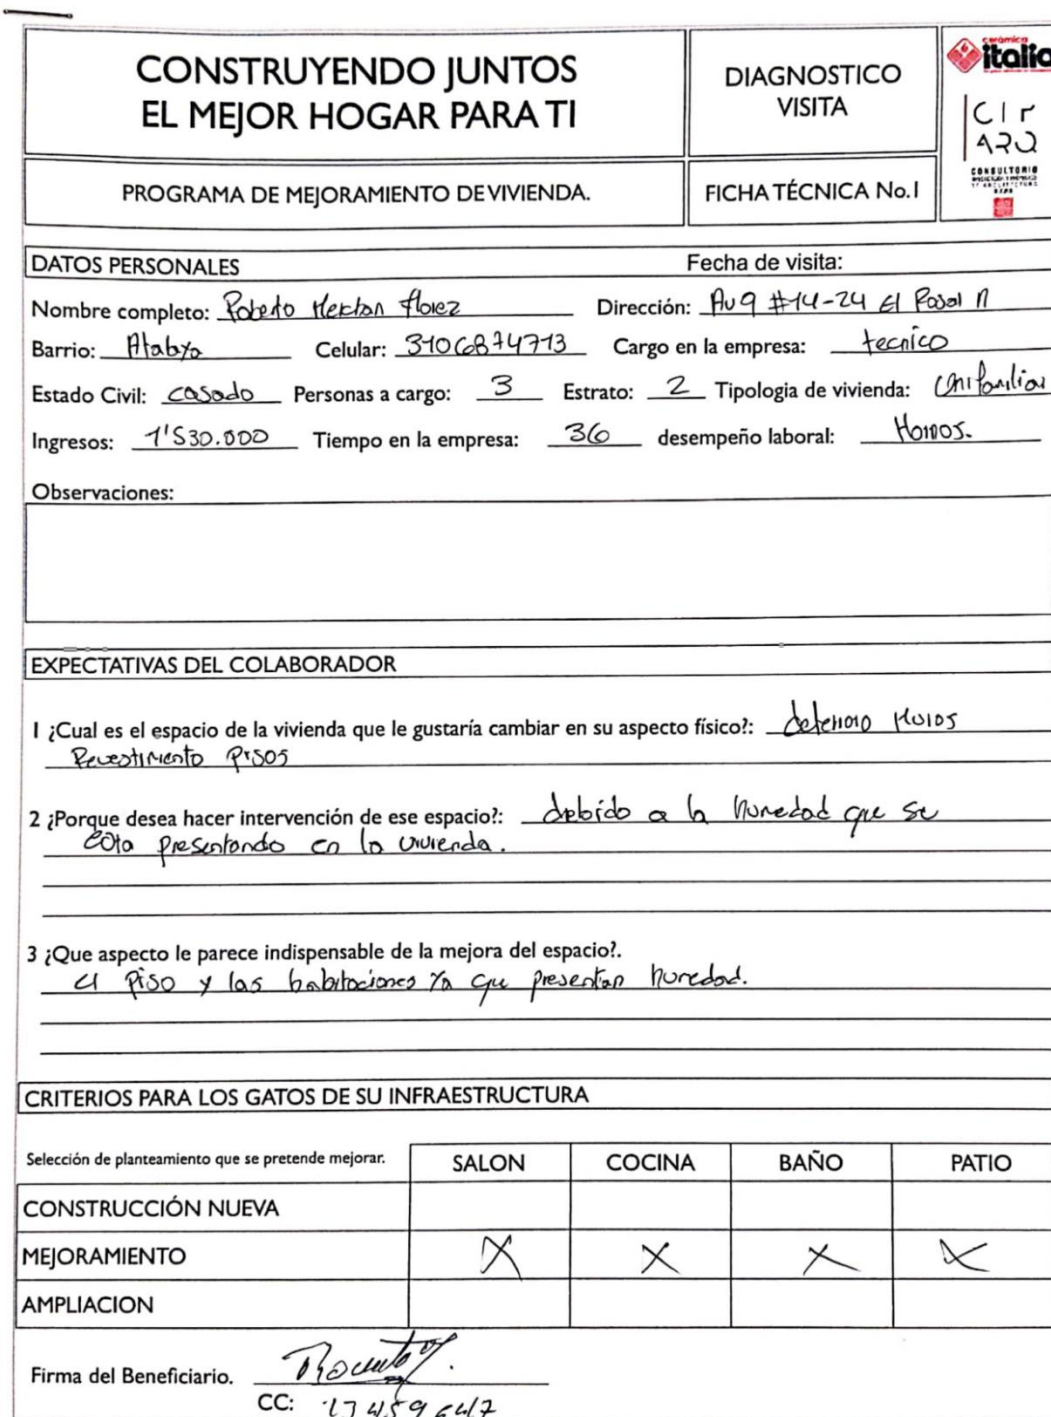 CONSTRUYENDO JUNTOS
EL MEJOR HOGAR PARA TI
DIAGNOSTICO
VISITA
cerámica
italia
CIr
ARQ
CONSULTORIO
PROGRAMA DE MEJORAMIENTO DE VIVIENDA.
FICHA TÉCNICA No.1
DATOS PERSONALES Fecha de visita:
Nombre completo: Roberto florez Dirección: Av 9 #14-24 El Rosal
Barrio: Atalaya Celular: 3106874713 Cargo en la empresa: tecnico
Estado Civil: casado Personas a cargo: 3 Estrato: 2 Tipologia de vivienda: Unifamiliar
Ingresos: 1'530.000 Tiempo en la empresa: 36 desempeño laboral: Hornos.
Observaciones:
EXPECTATIVAS DEL COLABORADOR
1 ¿Cual es el espacio de la vivienda que le gustaría cambiar en su aspecto físico?: deterioro Muros
Revestimiento Pisos
2 ¿Porque desea hacer intervención de ese espacio?: debido a la humedad que se
esta presentando en la vivienda.
3 ¿Que aspecto le parece indispensable de la mejora del espacio?.
el piso y las habitaciones Ya que presentan humedad.
CRITERIOS PARA LOS GATOS DE SU INFRAESTRUCTURA
Selección de planteamiento que se pretende mejorar. SALON COCINA BAÑO PATIO
CONSTRUCCIÓN NUEVA
MEJORAMIENTO X X X X
AMPLIACION
Firma del Beneficiario.
CC: